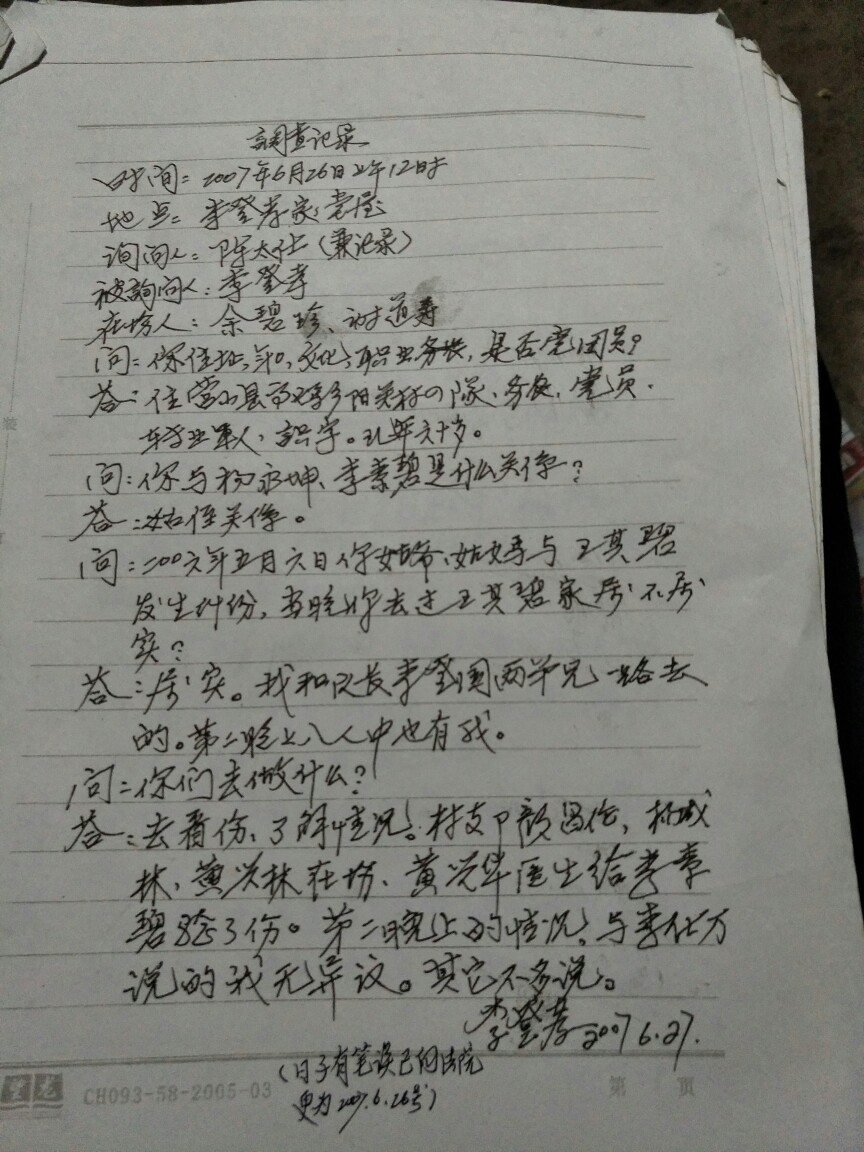 調查记录
时间:2007年6月26日上午12时
地点:李登孝家堂屋
询问人:陈太仕(兼记录)
被詢问人:李登孝
在场人:余碧珍、谢道寿
问:你住址,年令,文化,职业务农,是否党团员?
答:住营山县乡阳村四队,务农,党员.
转业軍人,識字。现年六十岁。
问:你与杨永坤、李素碧是什么关係?
答:姑侄关係。
问:二〇〇六年五月六日你姑爷、姑妈与王其碧
发生纠纷,当晚你去过王其碧家属不属
实?
答:属实。我和队长李登国两弟兄一路去
的。第二晚上八人中也有我。
问:你们去做什么?
答:去看伤、了解情况。村支卩颜昌伦,杨成
林、黄兴林在场、黄兴华医生给李素
碧验了伤。第二晚上的情况,与李化万
说的我无异议。其它不多说。
李登孝 2007 6.27.
(日子有笔误已向法院
更为2007.6.26号)
CH093-58-2005-03
第 页
装